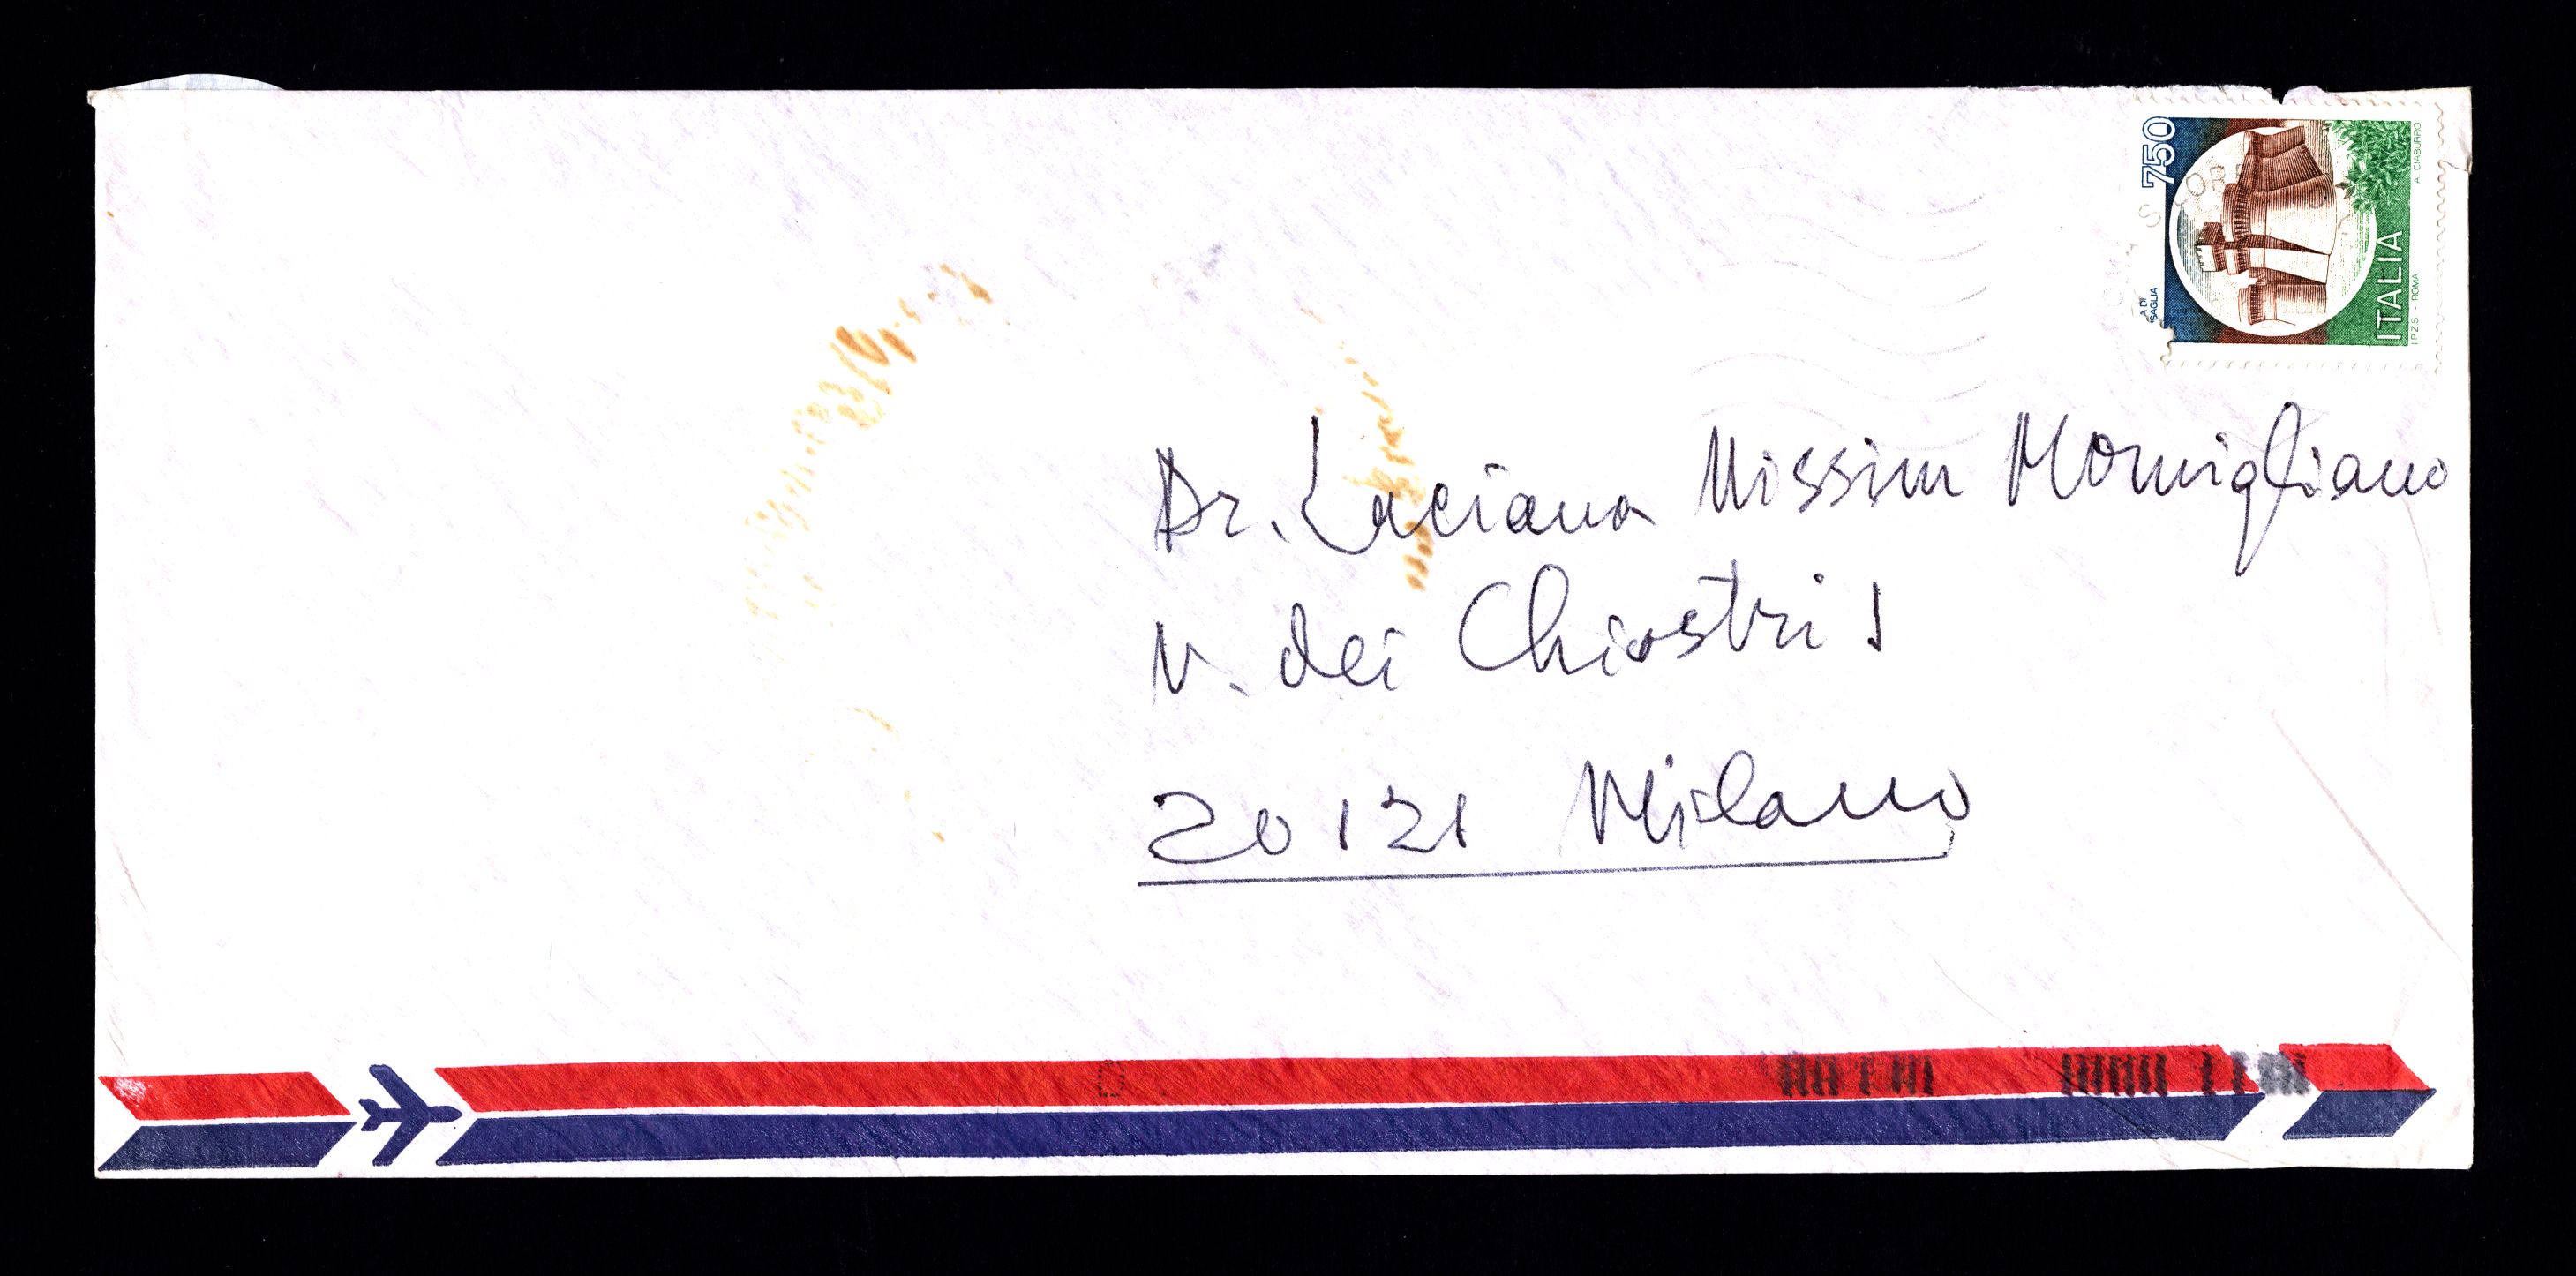 750
ITALIA
I.P.Z.S. - ROMA
A. CIABURRO
Dr. Luciana Nissim Momigliano
V. dei Chiostri 1
20121 Milano